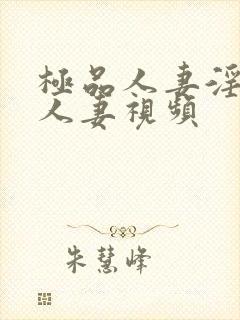 極品人妻淫
人妻視頻
朱慧峰